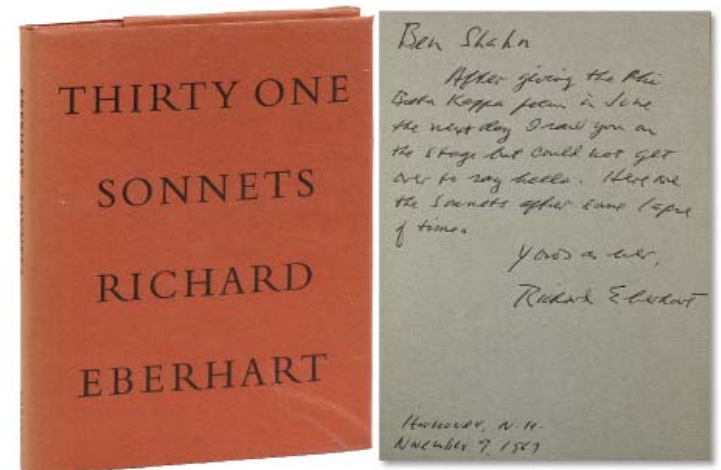 THIRTY ONE
SONNETS
RICHARD
EBERHART
Ben Shahn
After giving the Phi
Beta Kappa poem in June
the next day I saw you on
the stage but could not get
over to say hello. Here are
the Sonnets after some lapse
of time.
Yours as ever,
Richard Eberhart
Hanover, N.H.
November 9, 1967